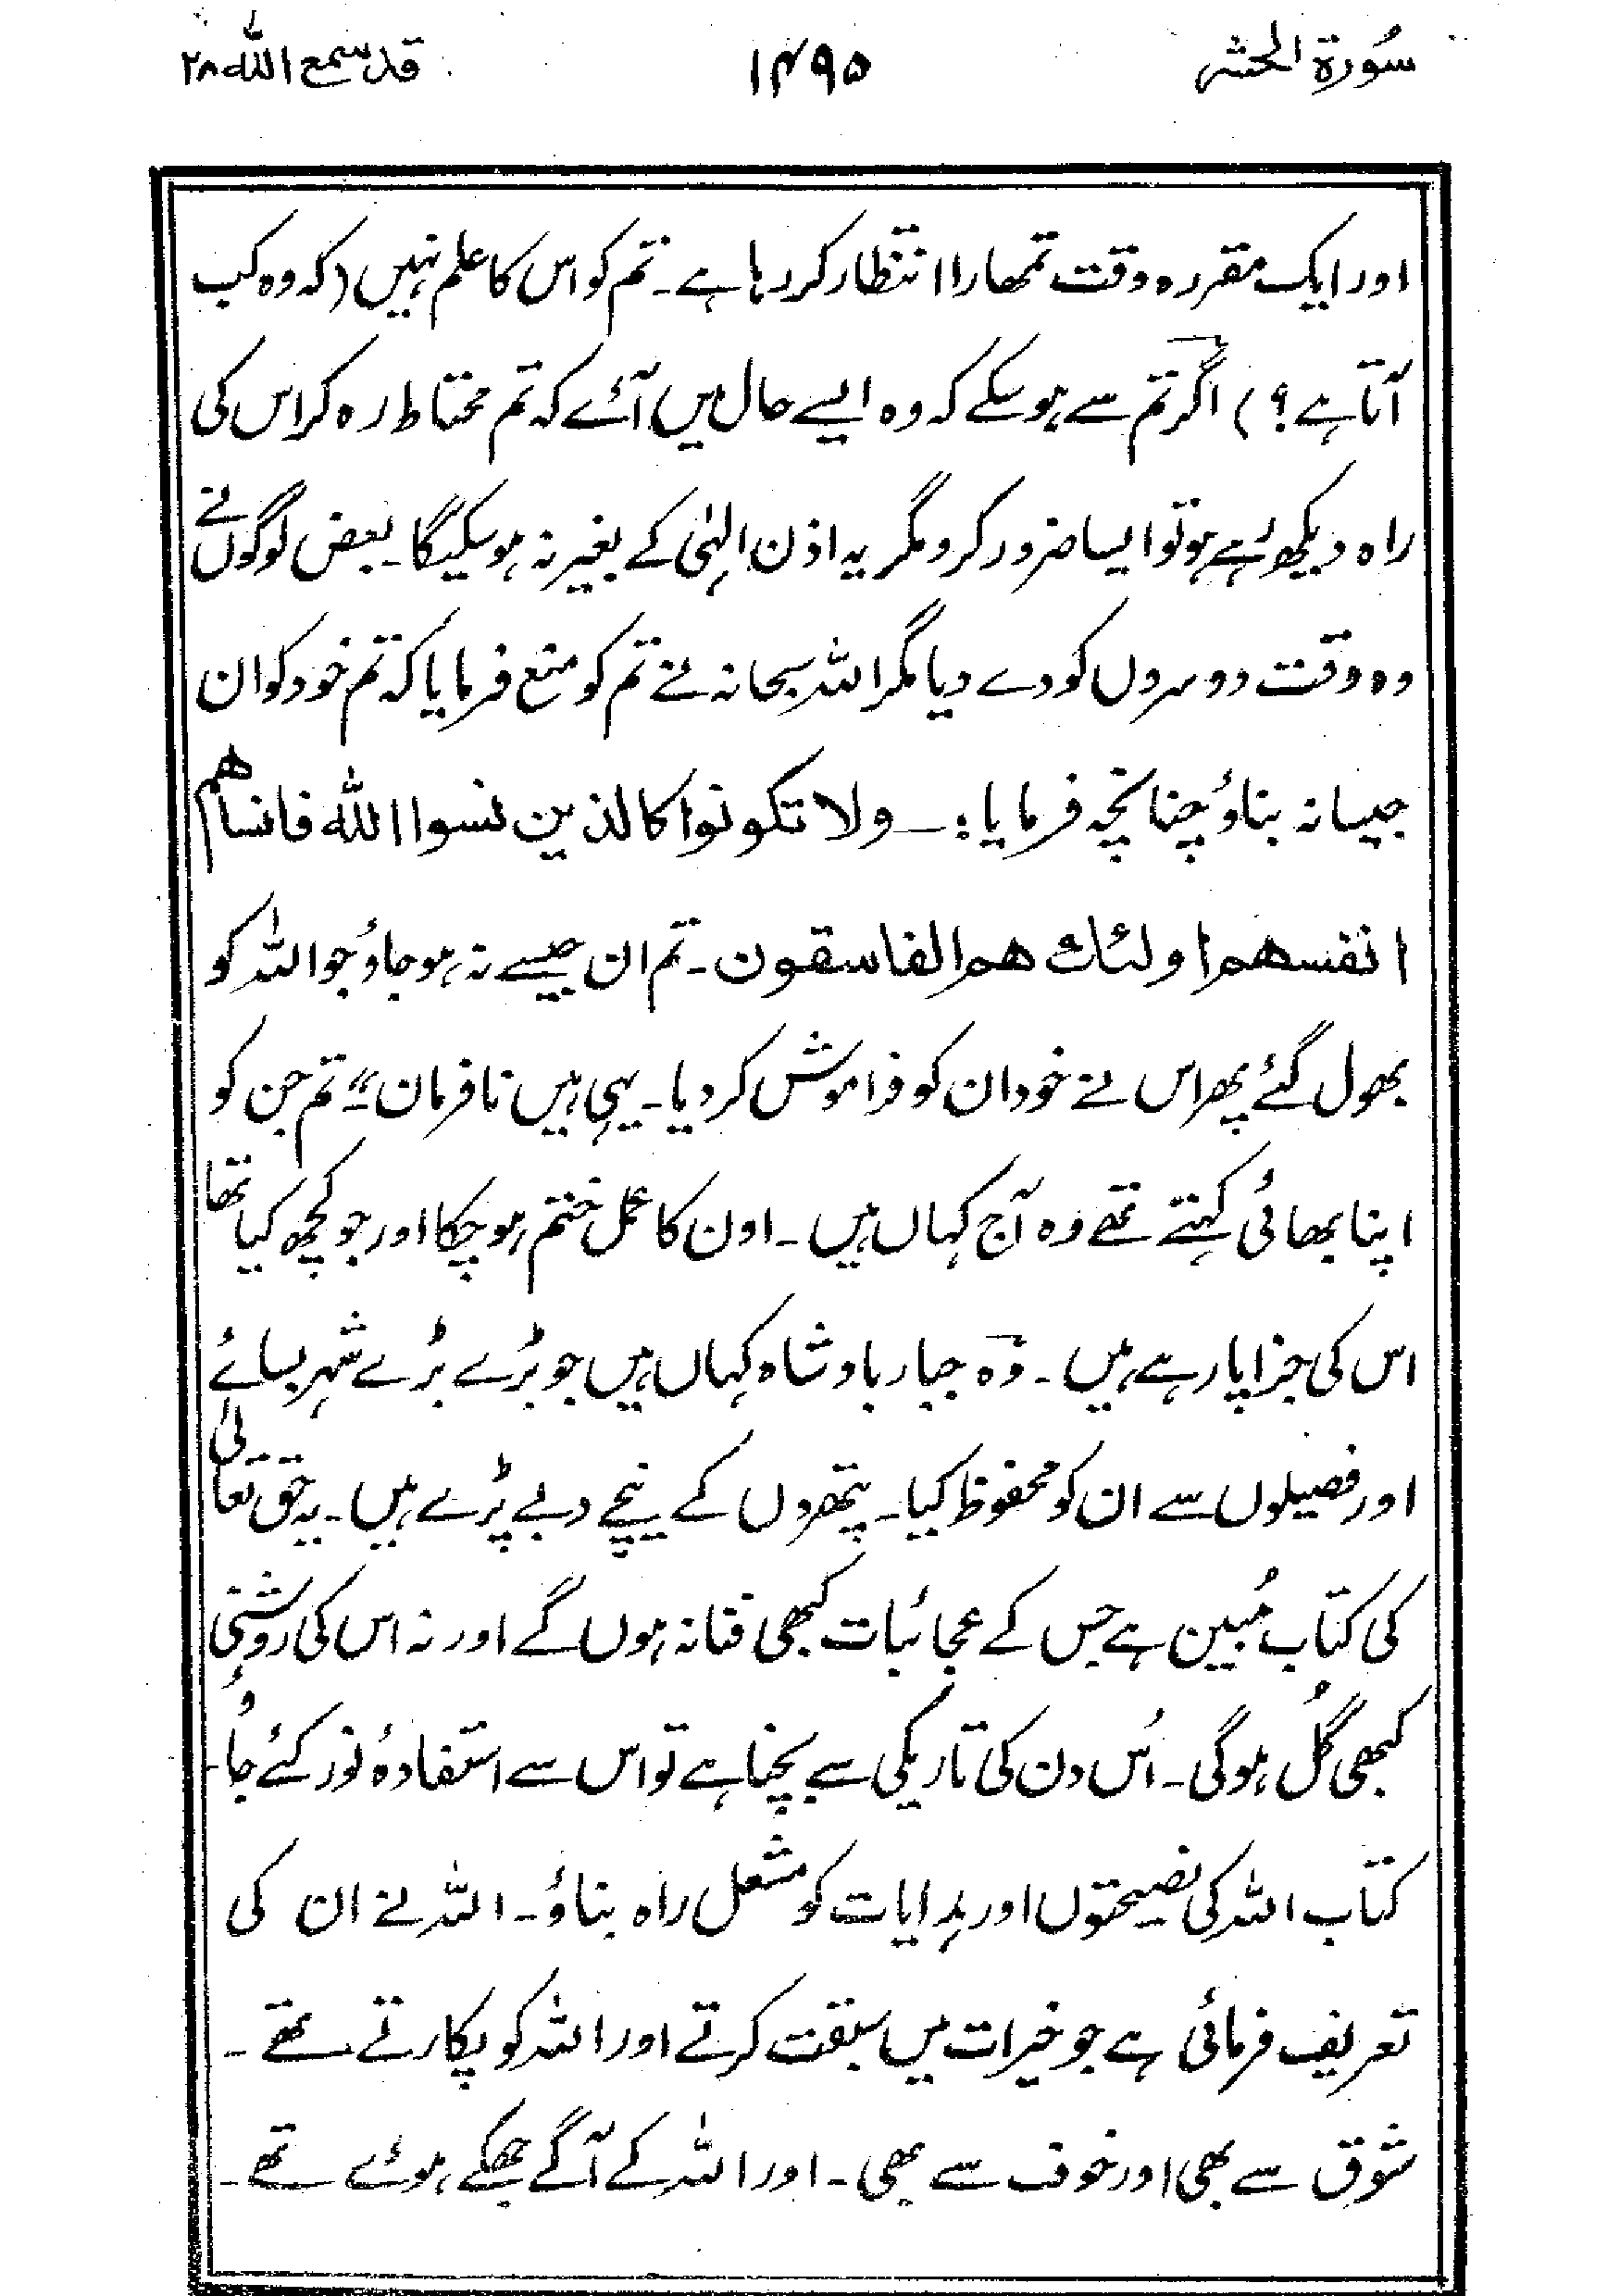 سُورۃ الحشر ۱۴۹۵ قد سمع اللہ ۲۸
اور ایک مقررہ وقت تمھارا انتظار کر رہا ہے۔ تم کو اس کا علم نہیں (کہ وہ کب
آتا ہے؟) اگر تم سے ہو سکے کہ وہ ایسے حال میں آئے کہ تم محتاط رہ کر اس کی
راہ دیکھ رہے ہو تو ایسا ضرور کرو مگر یہ اذن الٰہی کے بغیر نہ ہو سکیگا۔ بعض لوگوں نے
وہ وقت دوسروں کو دے دیا مگر اللہ سبحانہ نے تم کو منع فرمایا کہ تم خود کو ان
جیسا نہ بناؤ چنانچہ فرمایا:۔ ولا تکونوا کالذین نسوا اللہ فانساھم
انفسھم اولئک ھم الفاسقون۔ تم ان جیسے نہ ہو جاؤ جو اللہ کو
بھول گئے پھر اس نے خود ان کو فراموش کر دیا۔ یہی ہیں نافرمان"۔ تم جن کو
اپنا بھائی کہتے تھے وہ آج کہاں ہیں۔ اون کا عمل ختم ہو چکا اور جو کچھ کیا تھا
اس کی جزا پا رہے ہیں۔ وہ جبار بادشاہ کہاں ہیں جو بڑے بڑے شہر بسائے
اور فصیلوں سے ان کو محفوظ کیا۔ پتھروں کے نیچے دبے پڑے ہیں۔ یہ حق تعالیٰ
کی کتاب مُبین ہے جس کے عجائبات کبھی فنا نہ ہوں گے اور نہ اس کی روشنی
کبھی گُل ہوگی۔ اُس دن کی تاریکی سے بچنا ہے تو اس سے استفادۂ نور کئے جاؤ۔
کتاب اللہ کی نصیحتوں اور ہدایات کو مشعل راہ بناؤ۔ اللہ نے ان کی
تعریف فرمائی ہے جو خیرات میں سبقت کرتے اور اللہ کو پکارتے تھے۔
شوق سے بھی اور خوف سے بھی۔ اور اللہ کے آگے جھکے ہوئے تھے۔